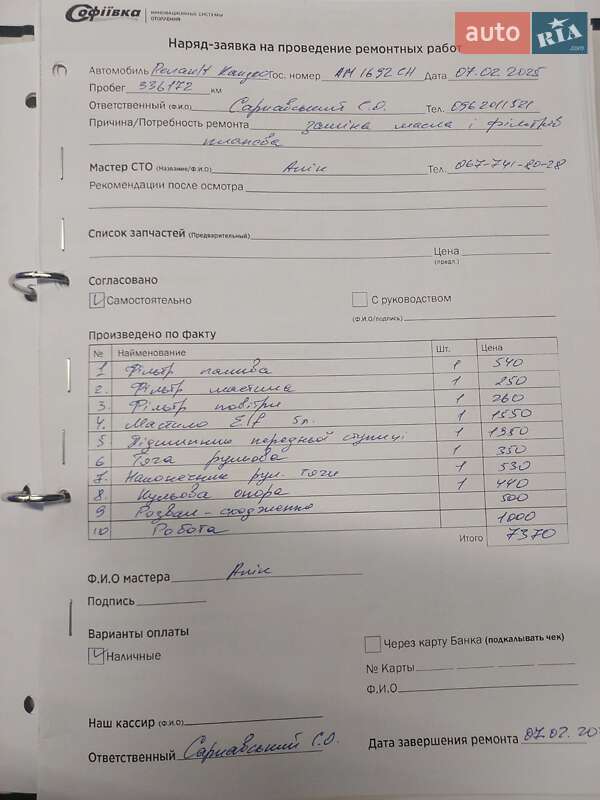 Софіївка
ИННОВАЦИОННЫЕ СИСТЕМЫ ОТОПЛЕНИЯ
auto RIA .com
Наряд-заявка на проведение ремонтных работ
Автомобиль Renault Kangoo Гос. номер АМ 1692 СН Дата 07.02.2025
Пробег 336172 км
Ответственный (Ф.И.О) Сарнавський С.О. Тел. 0962011521
Причина/Потребность ремонта заміна масла і фільтрів
планова
Мастер СТО (Название/Ф.И.О) Алік Тел. 067-741-80-28
Рекомендации после осмотра
Список запчастей (Предварительный)
Цена
(предл.)
Согласовано
Самостоятельно С руководством
(Ф.И.О/подпись)
Произведено по факту
№ Найменование Шт. Цена
1 Фільтр палива 1 540
2. Фільтр мастила 1 250
3. Фільтр повітря 1 260
4. Мастило Elf 5л. 1 1550
5 Підшипник передньої ступиці 1 1950
6 Тяга рульова 1 350
7. Наконечник рул. тяги 1 530
8 Кульова опора 1 440
9 Розвал-сходження 500
10 Робота 1000
Итого 7370
Ф.И.О мастера Алік
Подпись
Варианты оплаты
Наличные
Через карту Банка (подкалывать чек)
№ Карты
Ф.И.О
Наш кассир (Ф.И.О)
Ответственный Сарнавський С.О. Дата завершения ремонта 07.02.20